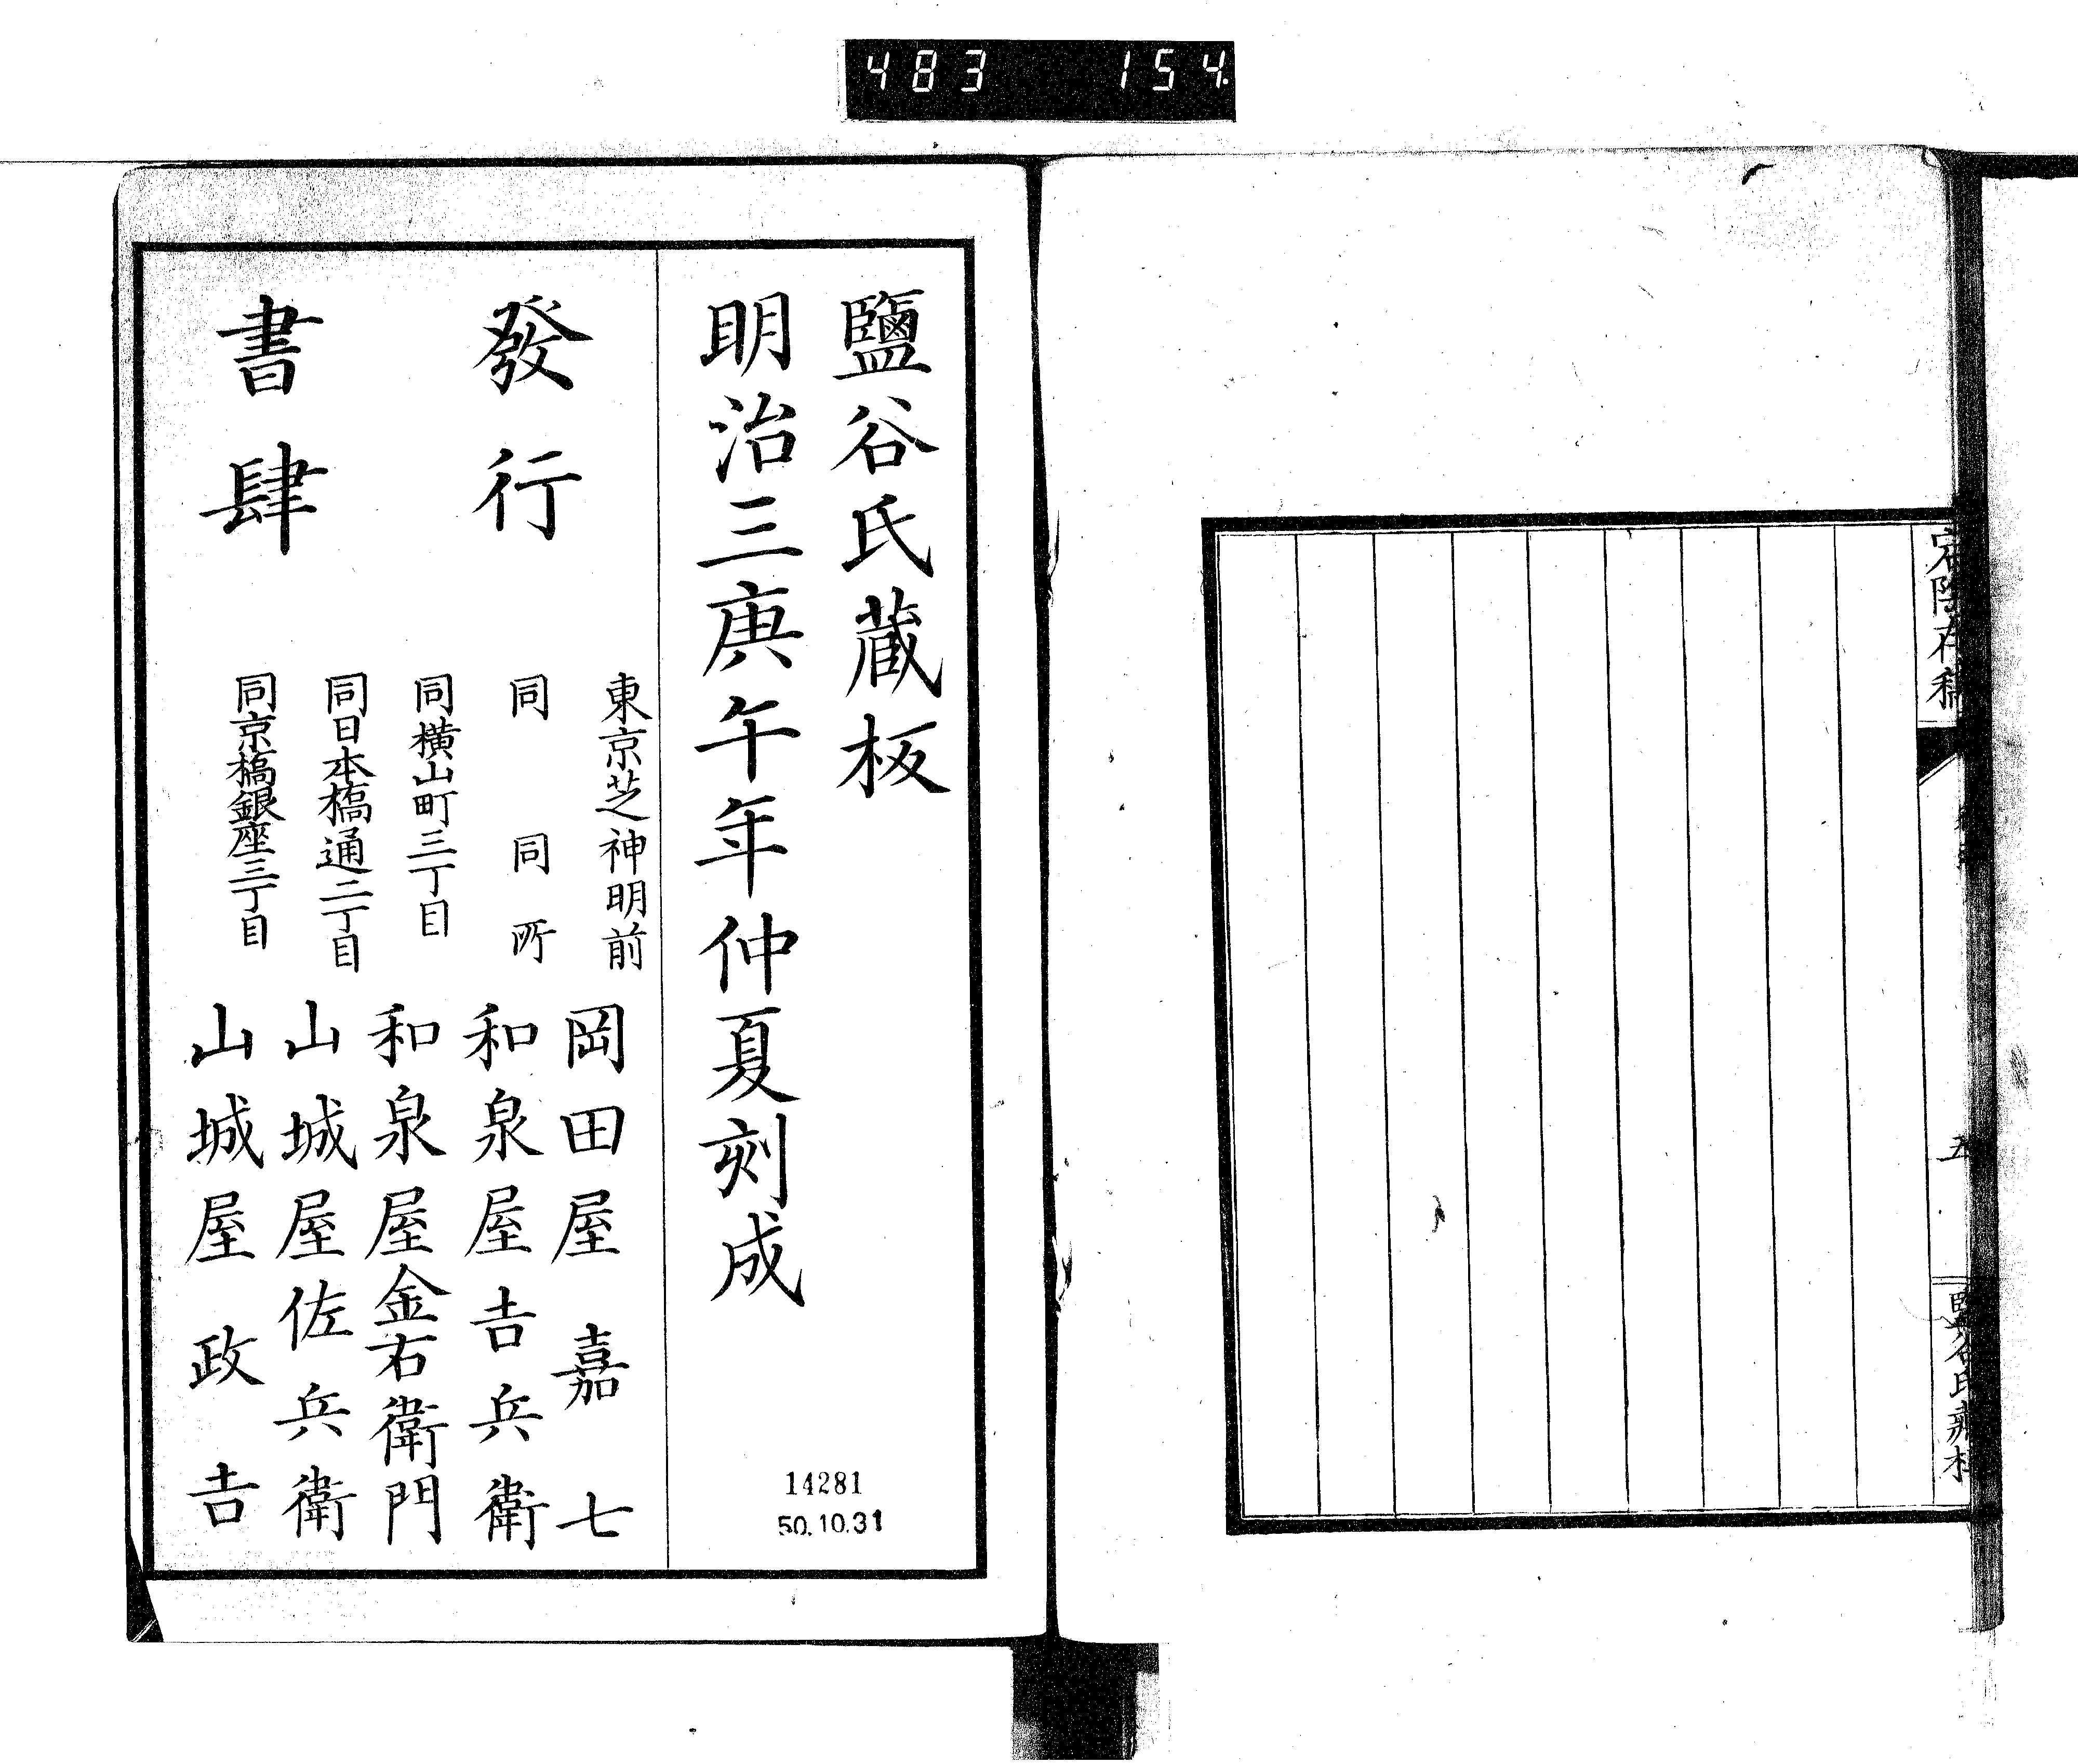 483 154
宕陰存稿
五
鹽谷氏藏板
明治三庚午年仲夏刻成
發行
書肆
東京芝神明前 岡田屋嘉七
同 同所 和泉屋吉兵衛
同横山町三丁目 和泉屋金右衛門
同日本橋通二丁目 山城屋佐兵衛
同京橋銀座三丁目 山城屋政吉
14281
50.10.31